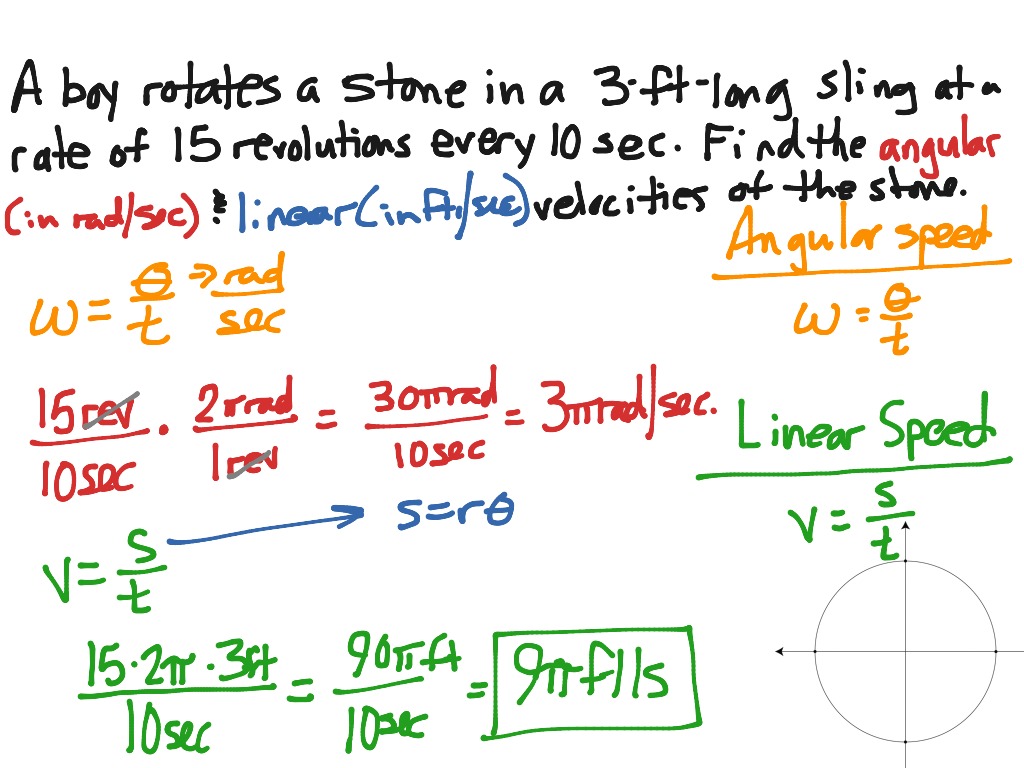 A boy rotates a stone in a 3-ft-long sling at a
rate of 15 revolutions every 10 sec. Find the angular
(in rad/sec) & linear (in ft/sec) velocities of the stone.
Angular speed
ω = θ/t → rad/sec
ω = θ/t
15 rev/10 sec · 2π rad/1 rev = 30π rad/10 sec = 3π rad/sec.
Linear Speed
v = s/t → s = rθ
v = s/t
15·2π·3ft/10 sec = 90π ft/10 sec = 9π ft/s